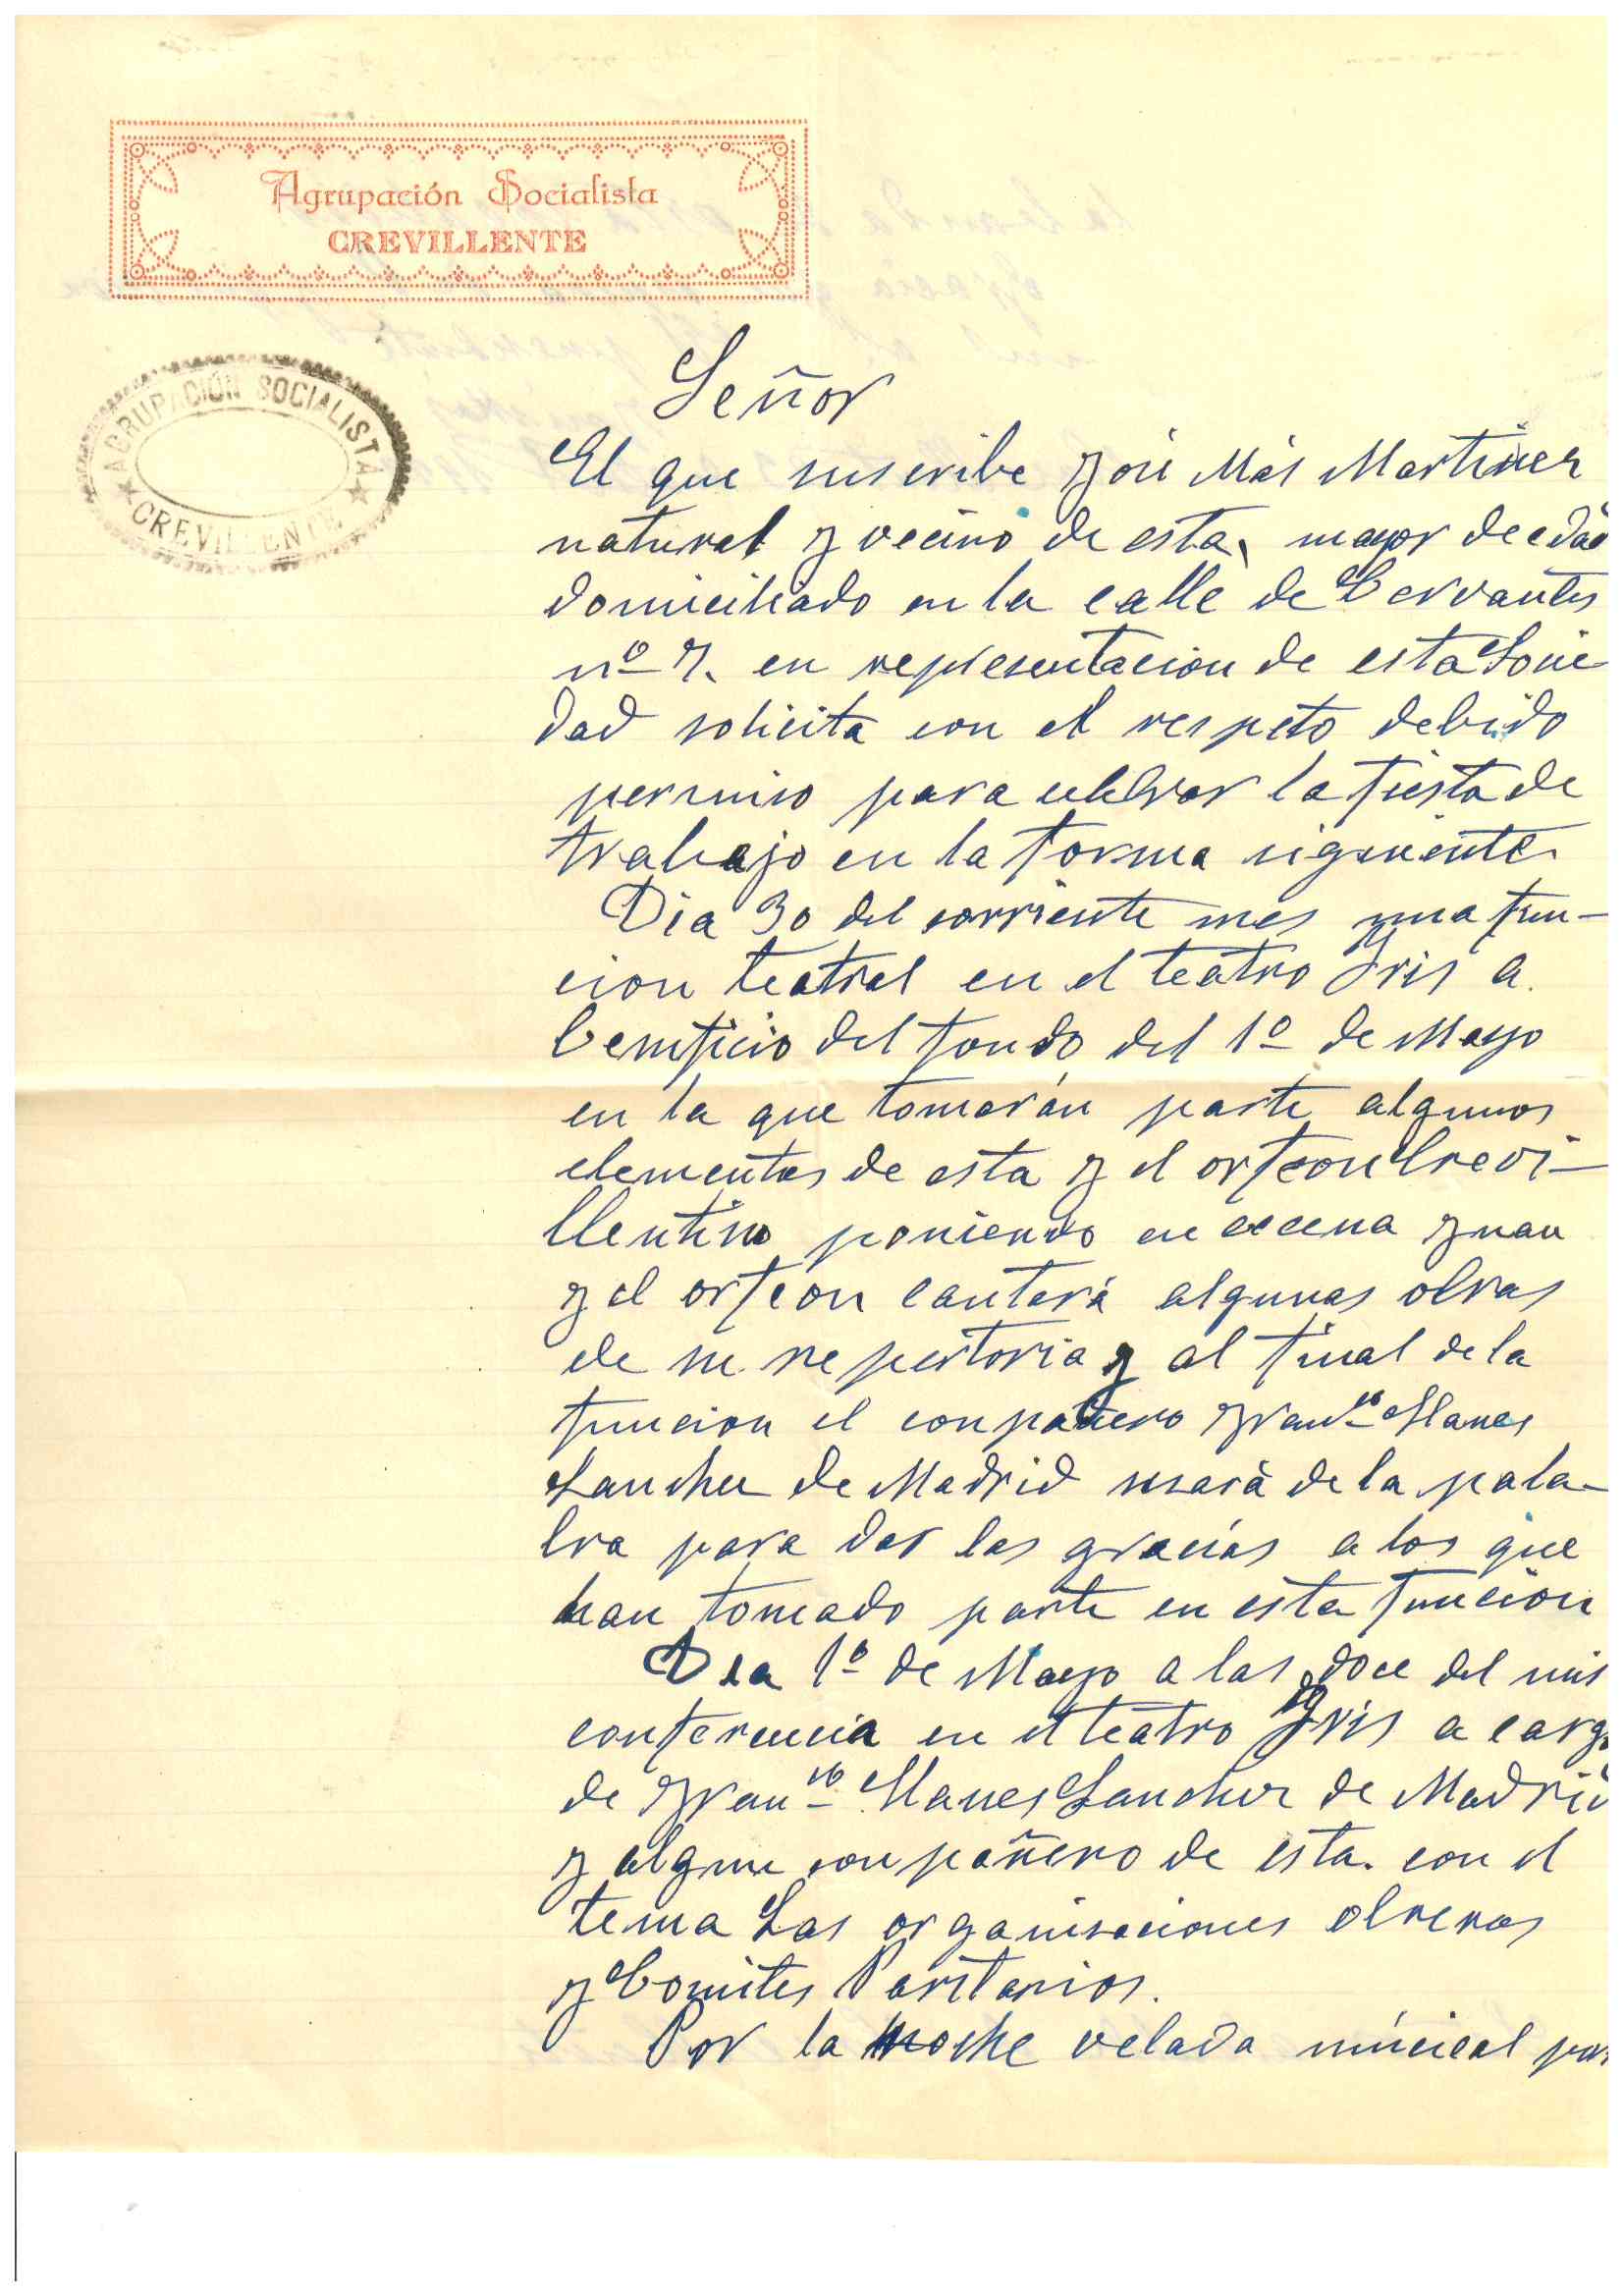 Agrupación Socialista
CREVILLENTE
AGRUPACIÓN SOCIALISTA
CREVILLENTE
Señor
El que suscribe José Más Martinez
natural y vecino de esta, mayor de edad
domiciliado en la calle de Cervantes
nº 7. en representacion de esta Socie
dad solicita con el respeto debido
permiso para celebrar la fiesta de
trabajo en la forma siguiente.
Dia 30 del corriente mes una fun-
cion teatral en el teatro Iris a
beneficio del fondo del 1º de Mayo
en la que tomarán parte algunos
elementos de esta y el orfeon Crevi-
llentino poniendo en escena Juan
y el orfeon cantará algunas obras
de su repertorio y al final de la
funcion el conpañero Franco Llanes
Sanchez de Madrid usará de la pala-
bra para dar las gracias a los que
han tomado parte en esta funcion
Dia 1º de Mayo a las doce del mis
conferencia en el teatro Iris a cargo
de Franco Llanes Sanchez de Madrid
y algun conpañero de esta. con el
tema Las organisaciones obreras
y Comites Paritarios.
Por la noche velada múcical por